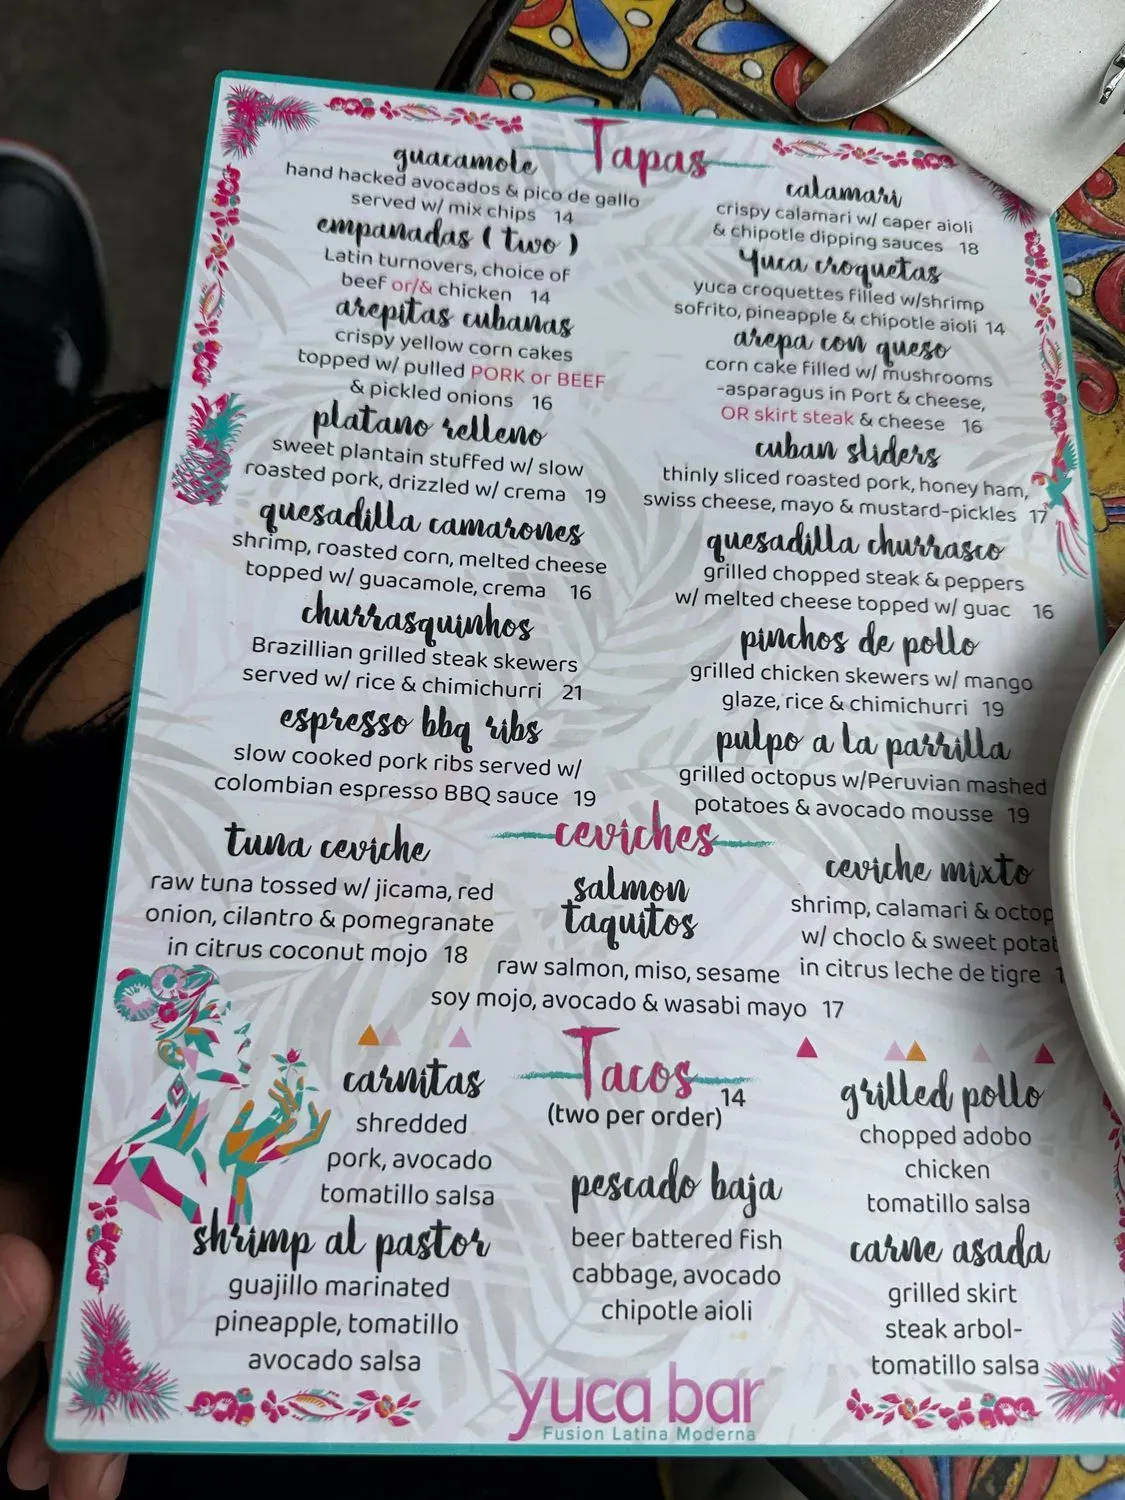 Tapas
guacamole
hand hacked avocados & pico de gallo
served w/ mix chips 14
empanadas ( two )
Latin turnovers, choice of
beef or/& chicken 14
arepitas cubanas
crispy yellow corn cakes
topped w/ pulled PORK or BEEF
& pickled onions 16
platano relleno
sweet plantain stuffed w/ slow
roasted pork, drizzled w/ crema 19
quesadilla camarones
shrimp, roasted corn, melted cheese
topped w/ guacamole, crema 16
churrasquinhos
Brazillian grilled steak skewers
served w/ rice & chimichurri 21
espresso bbq ribs
slow cooked pork ribs served w/
colombian espresso BBQ sauce 19
calamari
crispy calamari w/ caper aioli
& chipotle dipping sauces 18
Yuca croquetas
yuca croquettes filled w/shrimp
sofrito, pineapple & chipotle aioli 14
arepa con queso
corn cake filled w/ mushrooms
-asparagus in Port & cheese,
OR skirt steak & cheese 16
cuban sliders
thinly sliced roasted pork, honey ham,
swiss cheese, mayo & mustard-pickles 17
quesadilla churrasco
grilled chopped steak & peppers
w/ melted cheese topped w/ guac 16
pinchos de pollo
grilled chicken skewers w/ mango
glaze, rice & chimichurri 19
pulpo a la parrilla
grilled octopus w/Peruvian mashed
potatoes & avocado mousse 19
ceviches
tuna ceviche
raw tuna tossed w/ jicama, red
onion, cilantro & pomegranate
in citrus coconut mojo 18
salmon
taquitos
raw salmon, miso, sesame
soy mojo, avocado & wasabi mayo 17
ceviche mixto
shrimp, calamari & octop
w/ choclo & sweet potat
in citrus leche de tigre
Tacos
(two per order) 14
carnitas
shredded
pork, avocado
tomatillo salsa
shrimp al pastor
guajillo marinated
pineapple, tomatillo
avocado salsa
pescado baja
beer battered fish
cabbage, avocado
chipotle aioli
grilled pollo
chopped adobo
chicken
tomatillo salsa
carne asada
grilled skirt
steak arbol-
tomatillo salsa
yuca bar
Fusion Latina Moderna